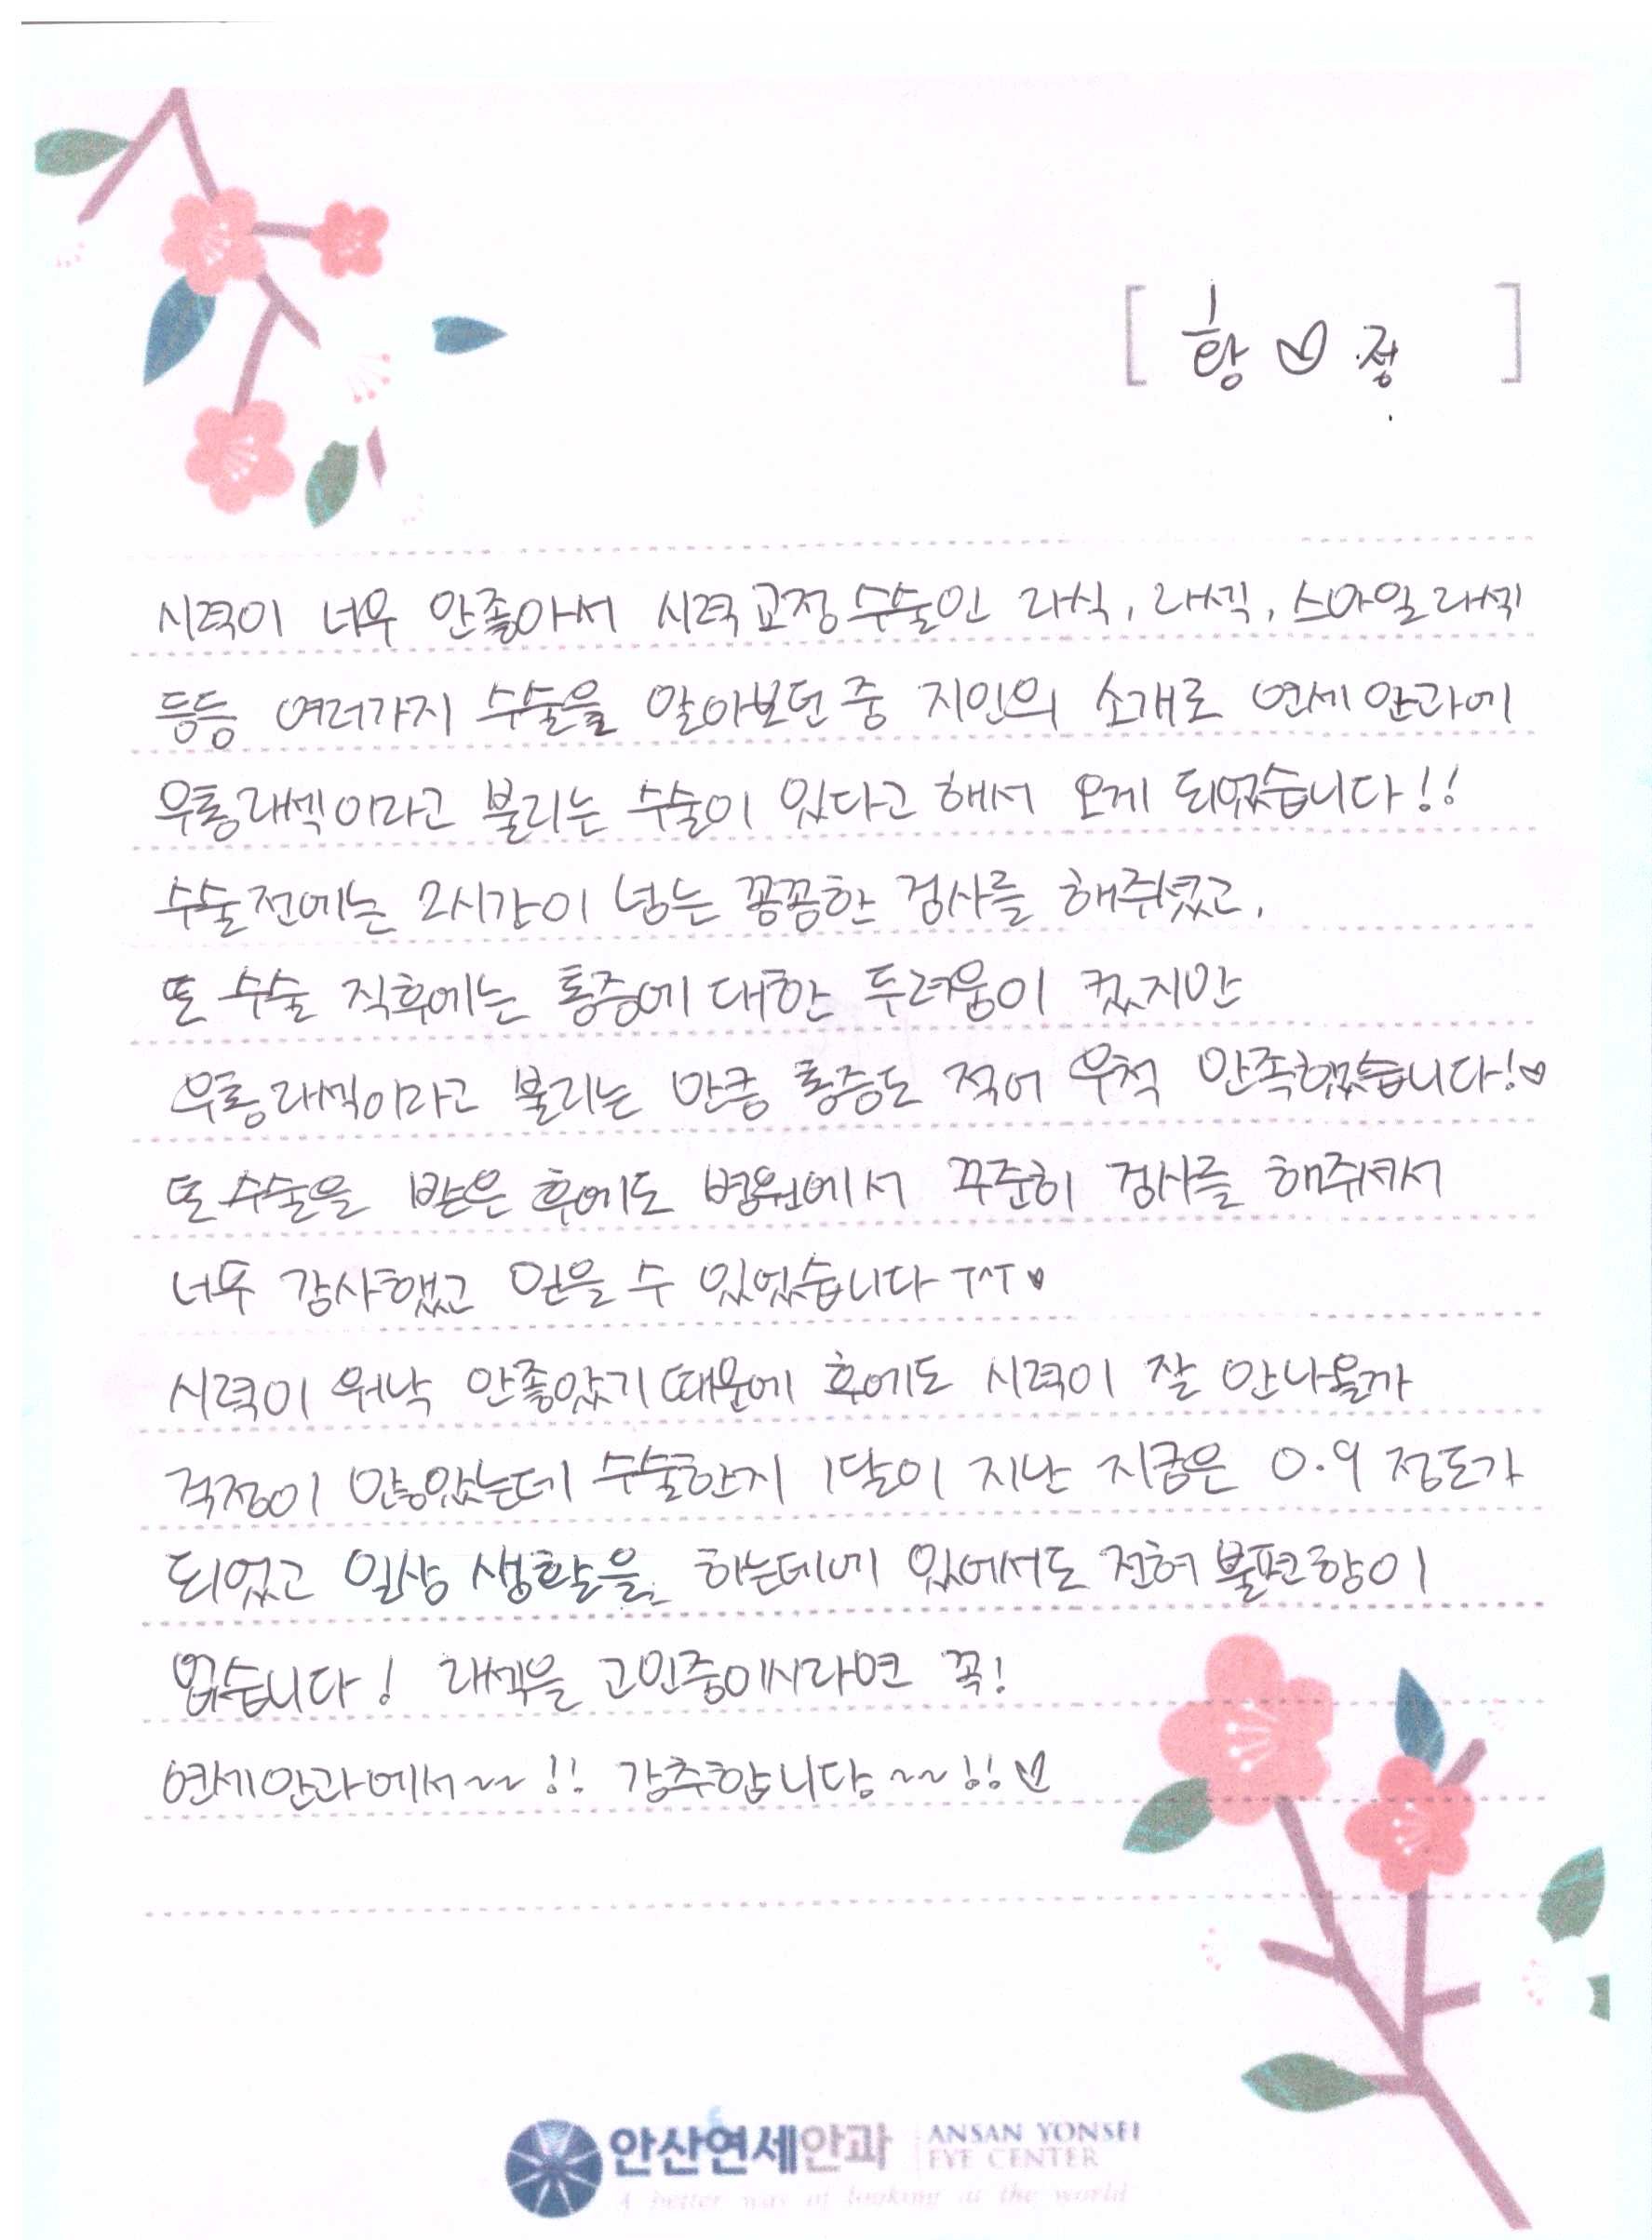 [ 황♡정 ]
시력이 너무 안좋아서 시력교정수술인 라식, 라섹, 스마일라섹
등등 여러가지 수술을 알아보던 중 지인의 소개로 연세안과에
무통라섹이라고 불리는 수술이 있다고 해서 오게 되었습니다!!
수술전에는 2시간이 넘는 꼼꼼한 검사를 해주셨고,
또 수술 직후에는 통증에 대한 두려움이 컸지만
무통라섹이라고 불리는 만큼 통증도 적어 무척 만족했습니다!♡
또 수술을 받은 후에도 병원에서 꾸준히 검사를 해주셔서
너무 감사했고 믿을 수 있었습니다 T^T♥
시력이 워낙 안좋았기 때문에 후에도 시력이 잘 안나올까
걱정이 많았는데 수술한지 1달이 지난 지금은 0.9 정도가
되었고 일상 생활을 하는데에 있어서도 전혀 불편함이
없습니다! 라섹을 고민중이시라면 꼭!
연세안과에서~~!! 강추합니당~~!!♡
안산연세안과 ANSAN YONSEI
EYE CENTER
A better way of looking at the world